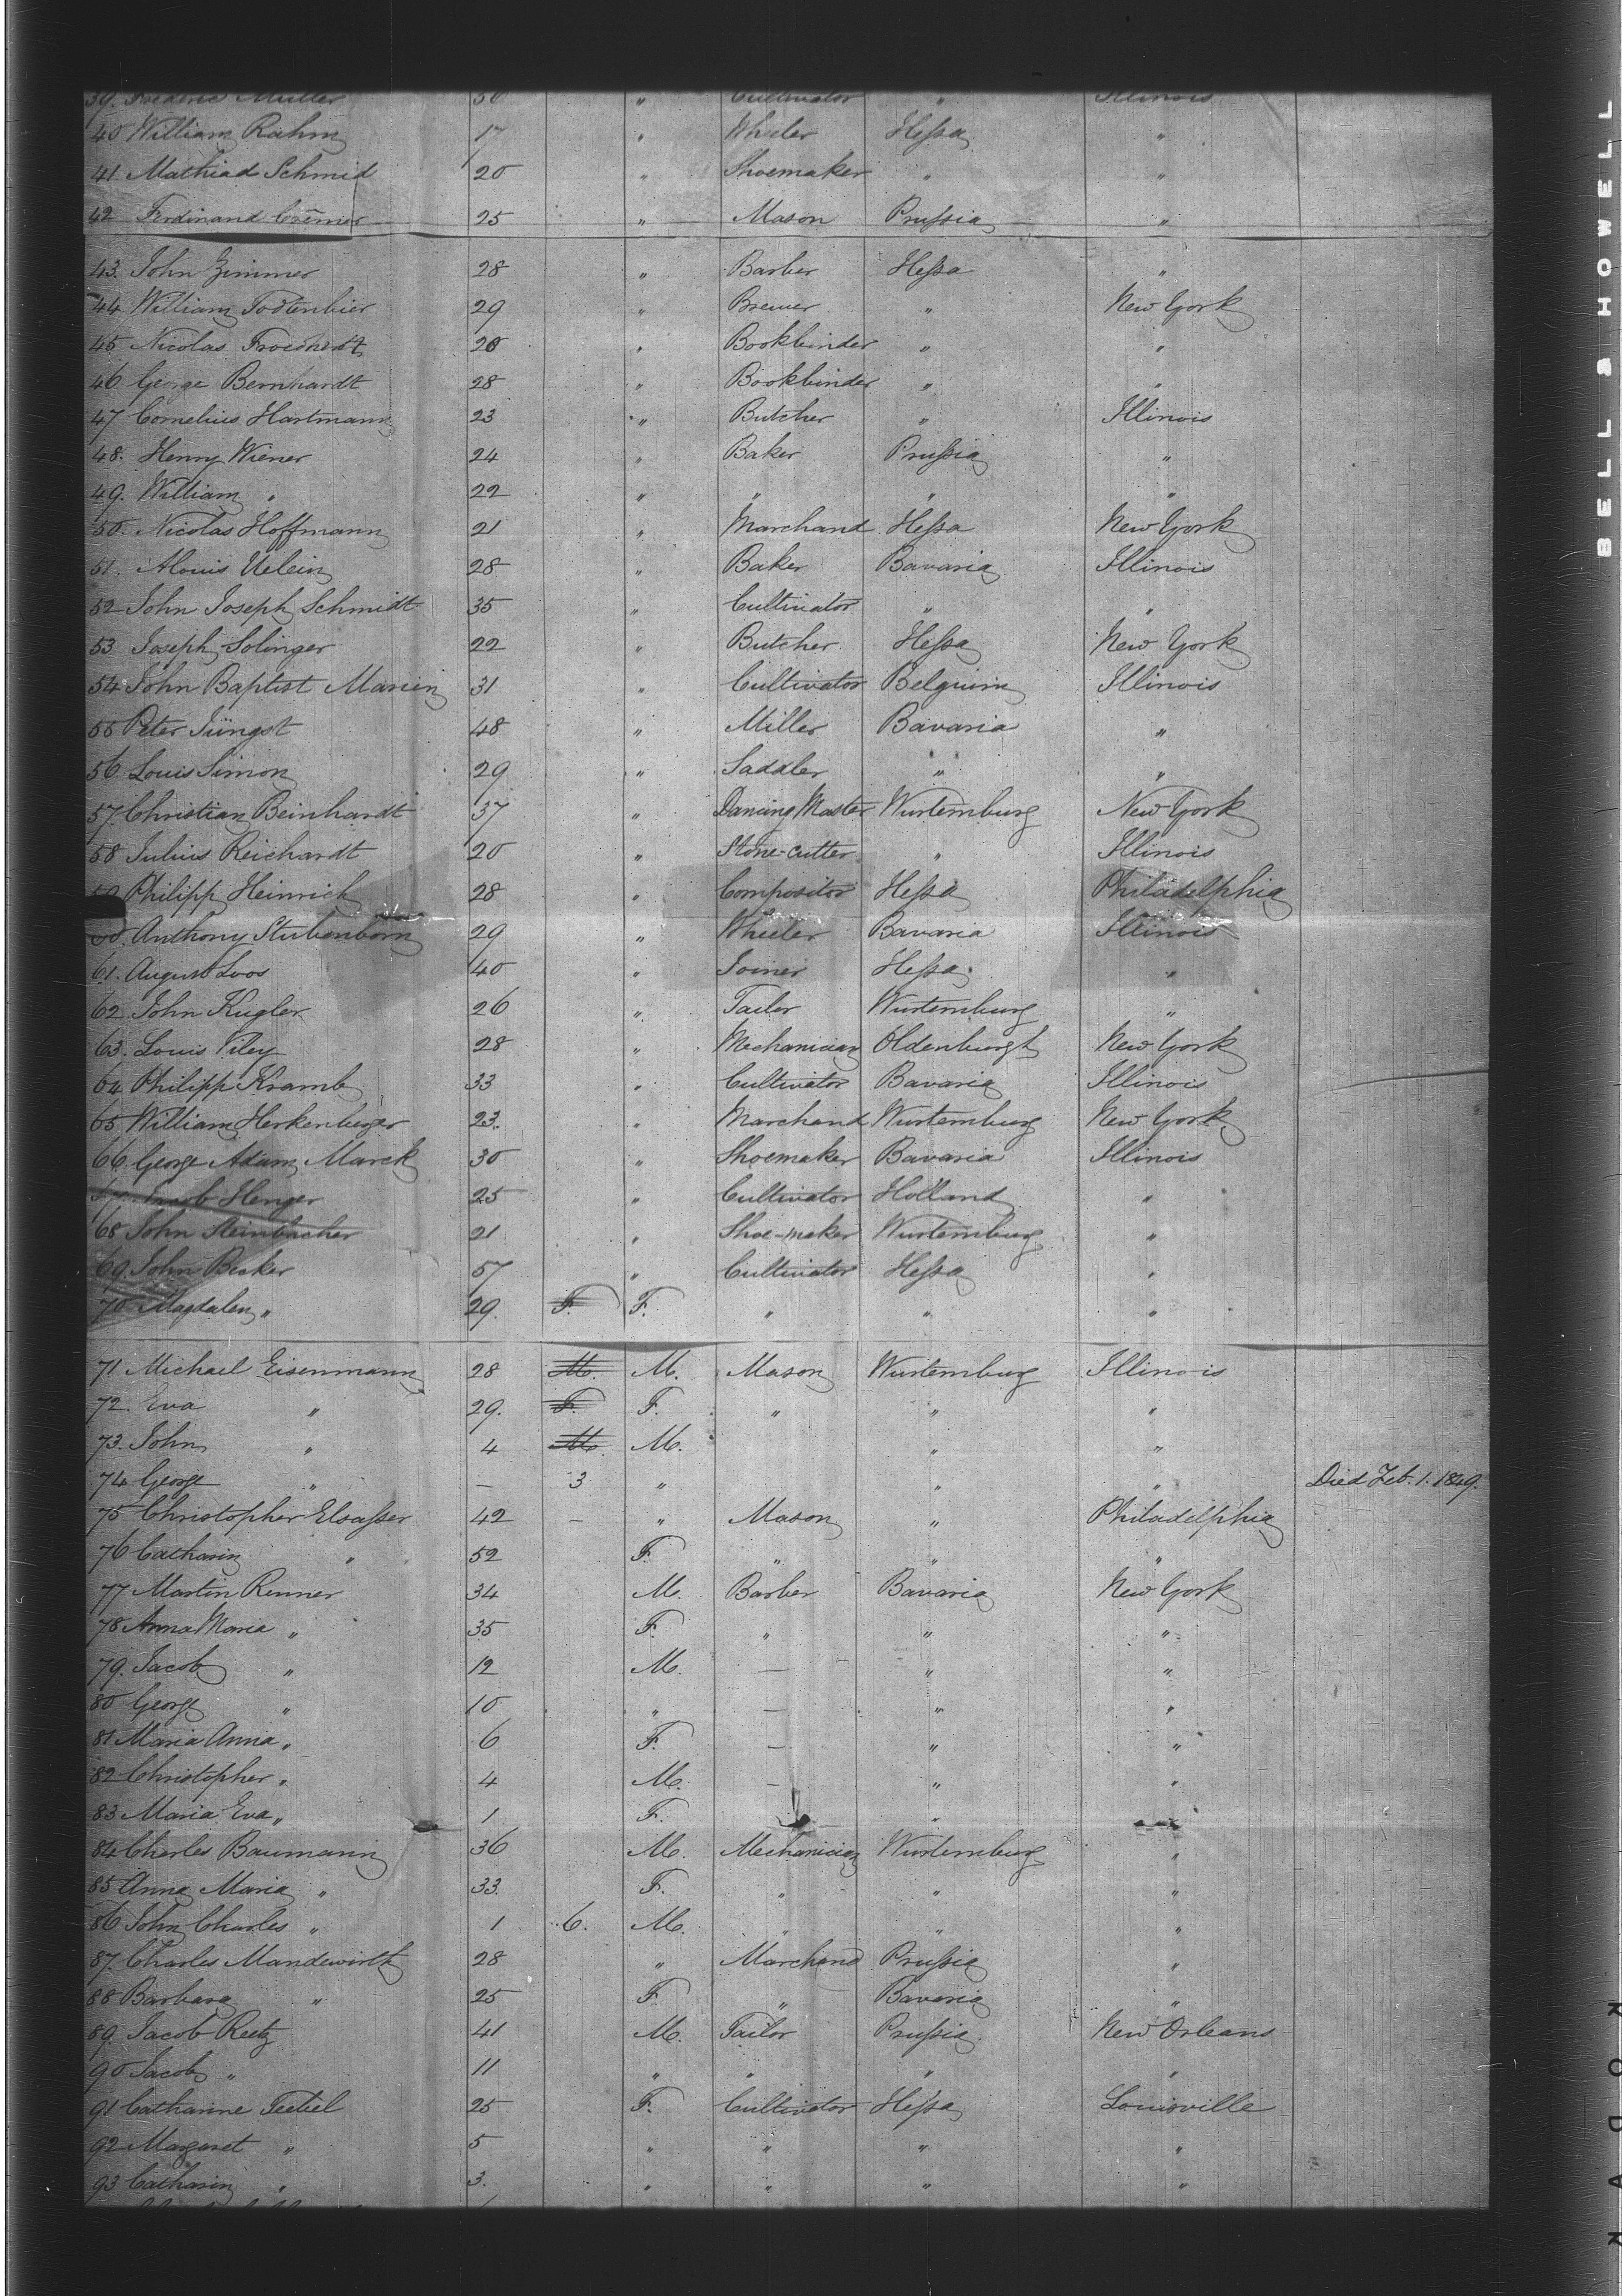 39. Frederic Muller 30 " Cultivator " Illinois
40 William Rahm 17 " Wheeler Hessa "
41. Mathias Schmid 20 " Shoemaker " "
42 Ferdinand 25 " Mason Prussia "
43. John Zimmer 28 " Barber Hessa "
44 William Todtenbier 29 " Brewer " New York
45 Nicolas 20 " Bookbinder " "
46 George Bernhardt 28 " Bookbinder " "
47 Cornelius Hartmann 23 " Butcher " Illinois
48. Henry Wiener 24 " Baker Prussia "
49. William " 22 " " " "
50. Nicolas Hoffmann 21 " Marchand Hessa New York
51. Alouis Uelein 28 " Baker Bavaria Illinois
52 John Joseph Schmidt 35 " Cultivator " "
53 Joseph Solinger 22 " Butcher Hessa New York
54 John Baptist Marien 31 " Cultivator Belguim Illinois
55 Peter Jüngst 48 " Miller Bavaria "
56 Louis Simon 29 " Saddler " "
57. Christian Beinhardt 37 " Dancing Master Wurtemburg New York
58 Julius Reichardt 20 " Stone-cutter " Illinois
59 Philipp Heinrich 28 " Compositor Hessa Philadelphia
60. Anthony Stubenborn 29 " Wheeler Bavaria Illinois
61. August Loos 40 " Joiner Hessa "
62 John Kugler 26 " Tailor Wurtemburg "
63. Louis Piley 28 " Mechanician Oldenburgh New York
64 Philipp Kramb 33 " Cultivator Bavaria Illinois
65 William Herkenburger 23. " Marchand Wurtemburg New York
66. George Adam Marck 30 " Shoemaker Bavaria Illinois
67. Jacob Henger 25 " Cultivator Holland "
68 John Steinbacher 21 " Shoe-maker Wurtemburg "
69. John Becker 57 " Cultivator Hessa "
70 Magdalen " 29. F. F. " " "
71 Michael Eisenmann 28 M. M. Mason Wurtemburg Illinois
72. Eva " 29. F. F. " " "
73. John " 4 M. M. " "
74 George " – 3 " " " Died Feb. 1. 1849.
75 Christopher Elsasser 42 – " Mason " Philadelphia
76 Catharin " 52 F. " " "
77 Martin Renner 34 M. Barber Bavaria New York
78 Anna Maria " 35 F. " " "
79. Jacob " 12 M. — " "
80 George " 10 " — " "
81 Maria Anna " 6 F. — " "
82 Christopher " 4 M. — " "
83 Maria Eva " 1 F. "
84 Charles Baumann 36 M. Mechanician Wurtemburg "
85 Anna Maria " 33. F. " " "
86 John Charles " 1 6. M. " " "
87. Charles Mandewirth 28 " Marchand Prussia "
88 Barbara " 25 F " Bavaria "
89. Jacob Reetz 41 M. Tailor Prussia New Orleans
90 Jacob " 11 " " " "
91 Catharine 25 F. Cultivator Hessa Louisville
92 Margaret " 5 " " " "
93 Catharin " 3. " " " "
BELL & HOWELL